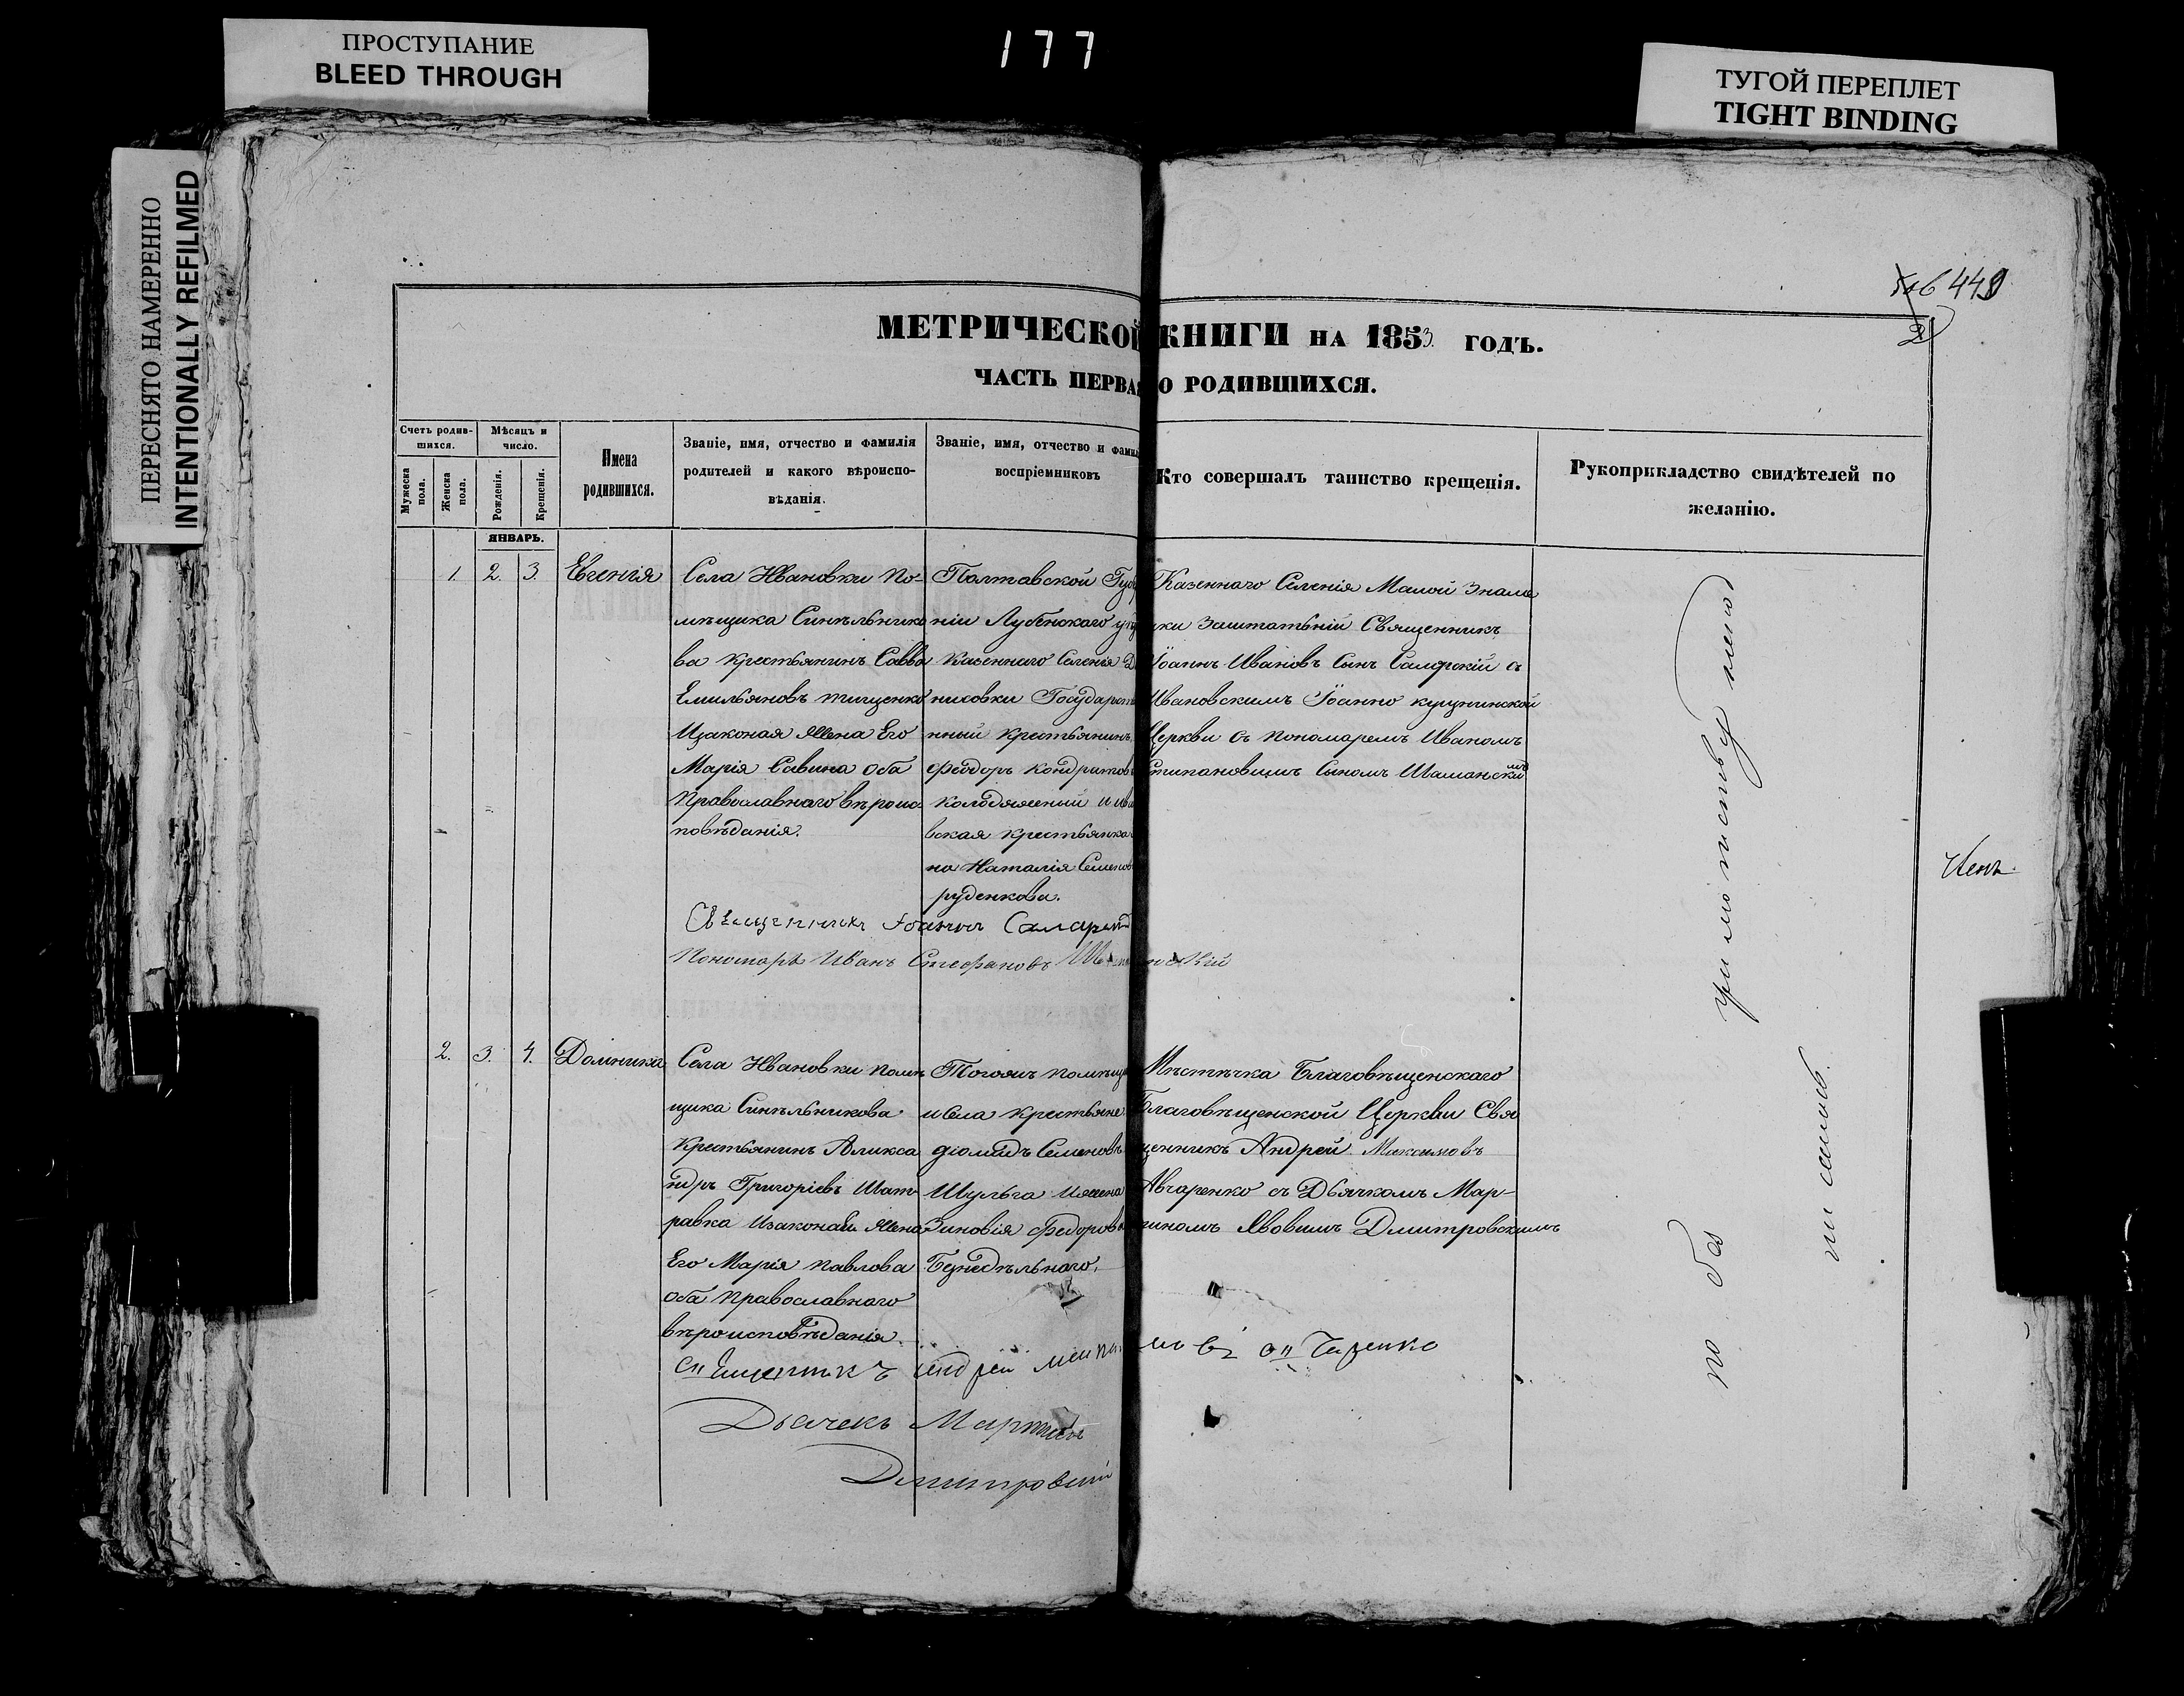 ПРОСТУПАНИЕ
BLEED THROUGH
177
ТУГОЙ ПЕРЕПЛЕТ
TIGHT BINDING
ПЕРЕСНЯТО НАМЕРЕННО
INTENTIONALLY REFILMED
449
2
МЕТРИЧЕСКОЙ КНИГИ НА 1853 ГОДЪ.
ЧАСТЬ ПЕРВАЯ О РОДИВШИХСЯ.
Счетъ родив-
шихся.
Мужеска
пола.
Женска
пола.
Мѣсяцъ и
число.
Рожденія.
Крещенія.
Имена
родившихся.
Званіе, имя, отчество и фамилія
родителей и какого вѣроиспо-
вѣданія.
Званіе, имя, отчество и фамил
воспріемниковъ
Кто совершалъ таинство крещенія.
Рукоприкладство свидѣтелей по
желанію.
ЯНВАРЬ.
1. 2. 3. Евгенія
Села Ивановки По-
мѣщика Синѣльнико
ва крестьянинъ Савва
Емильяновъ тищенко
Изаконая Жена Его
Марія Савина оба
Православнаго вѣроис
повѣданія.
Полтавской Губер
ніи Лубенскаго уѣз
казеннаго Селенія
никовки Государст
нный крестьянинъ
Федоръ кондратов
колодяжный и
вская крестьянка
на Наталія Семенов
руденкова.
Казеннаго Селенія Малой Знаме
ки Заштатьній Священникъ
Іоаннъ Ивановъ Сынъ Самарскій съ
Ивановскимъ Іоанно
Церкви съ пономаремъ Иваномъ
Степановимъ Сыномъ Шаманскимъ
Священникъ Іоаннъ Самарскій
Пономарь Иванъ Стефановъ
2. 3. 4. Домникія
Села Ивановки помѣ
щика Синѣльникова
Крестьянинъ Алекса
ндръ Григоріевъ Шат-
равка Изаконая Жена
Его Марія павлова
оба православнаго
вѣроисповѣданія.
Тогожъ помѣщи
и села крестьяне
діомидъ Семеновъ
Шульга Ижена
Зиновія Федорова
Безнедѣльнаго.
Мѣстѣчка Благовѣщенскаго
Благовѣщенской Церкви Свя
щенникъ Андрей Максимовъ
Авчаренко съ Дьячкомъ Мар-
тиномъ Явовимъ Дмитровскимъ
Священникъ Андрей Максимовъ
Дьячекъ Мартинъ
Дмитровскій